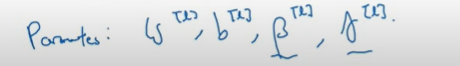 Parameters: W^[l], b^[l], β^[l], γ^[l].